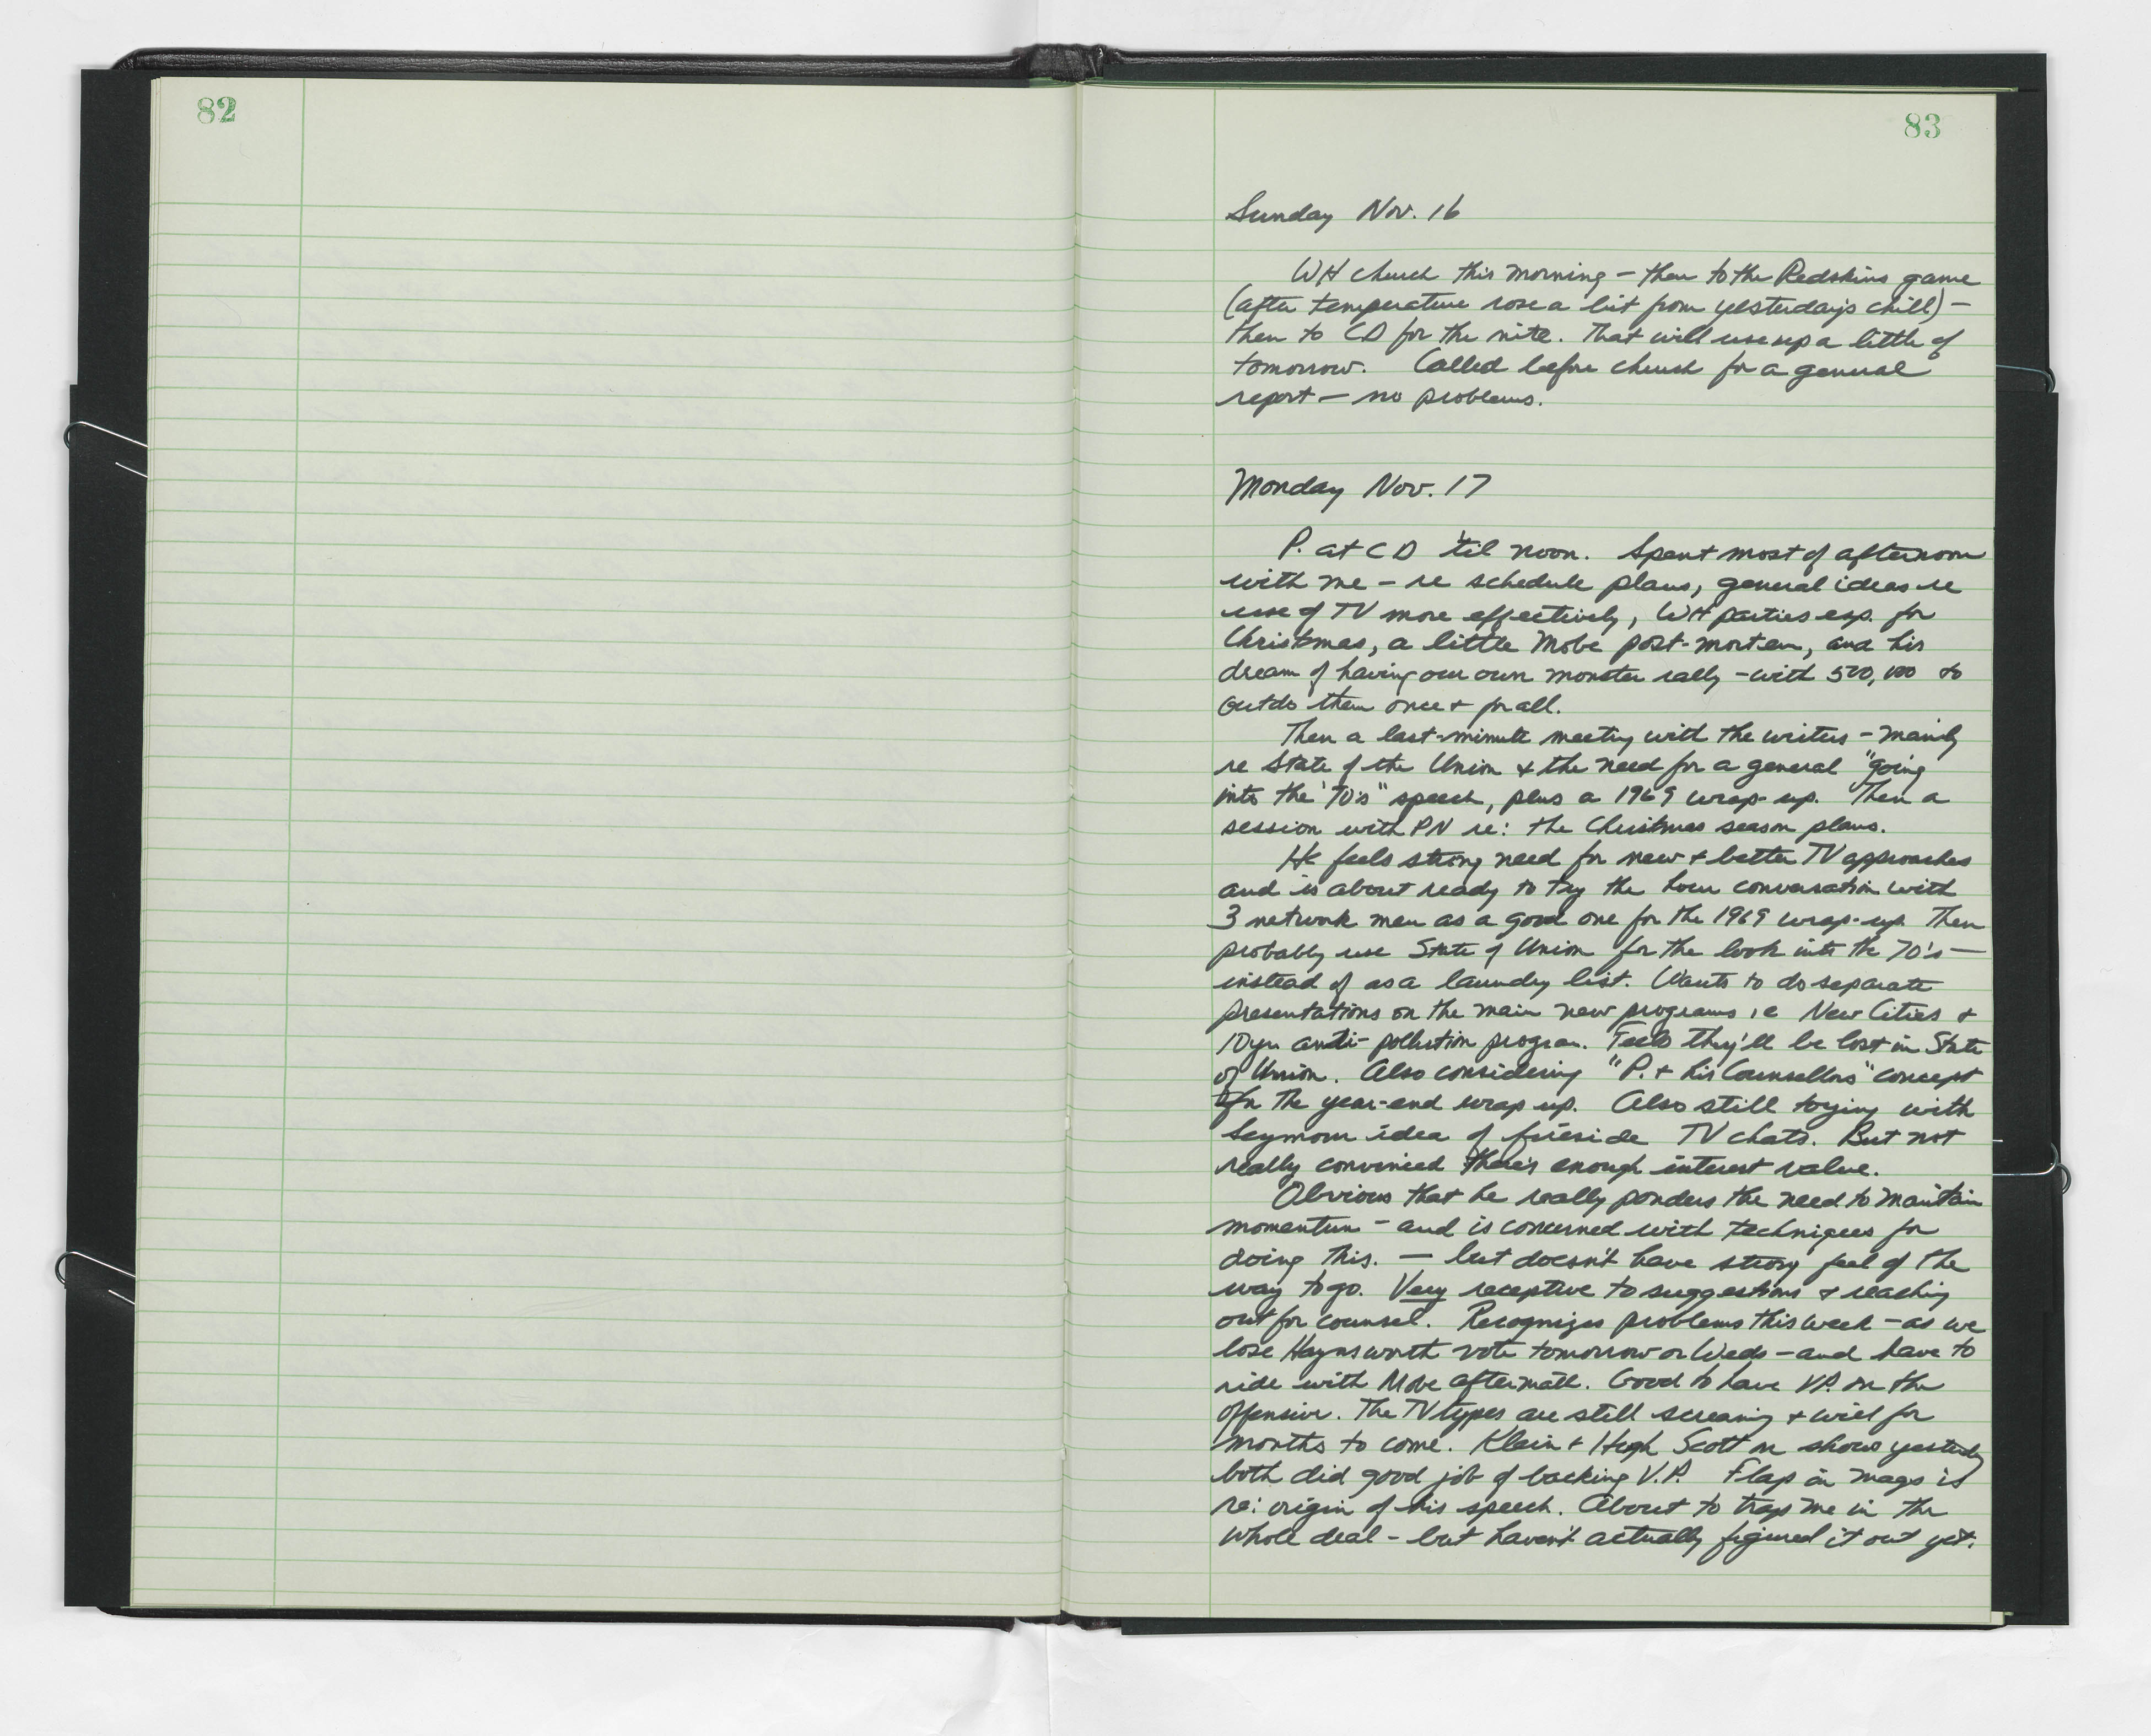 82
83
Sunday Nov. 16
WH church this morning – then to the Redskins game
(after temperature rose a bit from yesterday's chill) –
then to CD for the nite. That will use up a little of
tomorrow. Called before church for a general
report – no problems.
Monday Nov. 17
P. at CD 'til noon. Spent most of afternoon
with me – re schedule plans, general ideas re
use of TV more effectively, WH parties esp. for
Christmas, a little Mobe post-mortem, and his
dream of having our own monster rally – with 500,000 to
outdo them once + for all.
Then a last-minute meeting with the writers – mainly
re State of the Union + the need for a general "going
into the '70's" speech, plus a 1969 wrap-up. Then a
session with PN re: the Christmas season plans.
He feels strong need for new + better TV approaches
and is about ready to try the hour conversation with
3 network men as a good one for the 1969 wrap-up. Then
probably use State of Union for the look into the 70's –
instead of as a laundry list. Wants to do separate
presentations on the main new programs, ie New Cities +
10 yr. anti-pollution program. Feels they'll be lost in State
of Union. Also considering "P. + his Counsellors" concept
for the year-end wrap up. Also still toying with
Seymour idea of fireside TV chats. But not
really convinced there's enough interest value.
Obvious that he really ponders the need to maintain
momentum – and is concerned with techniques for
doing this. – but doesn't have strong feel of the
way to go. Very receptive to suggestions + reaching
out for counsel. Recognizes problems this week – as we
lose Haynsworth vote tomorrow or Weds – and have to
ride with Mobe aftermath. Good to have VP. on the
offensive. The TV types are still screaming + will for
months to come. Klein + Hugh Scott on shows yesterday
both did good job of backing V.P. Flap in mags is
re: origin of his speech. About to trap me in the
whole deal – but haven't actually figured it out yet.